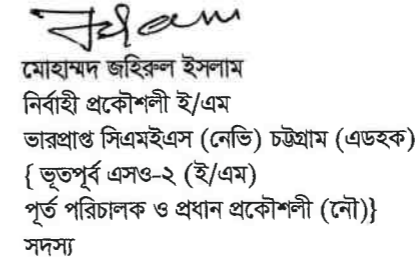 মোহাম্মদ জহিরুল ইসলাম
নির্বাহী প্রকৌশলী ই/এম
ভারপ্রাপ্ত সিএমইএস (নেভি) চট্টগ্রাম (এডহক)
{ ভূতপূর্ব এসও-২ (ই/এম)
পূর্ত পরিচালক ও প্রধান প্রকৌশলী (নৌ)}
সদস্য